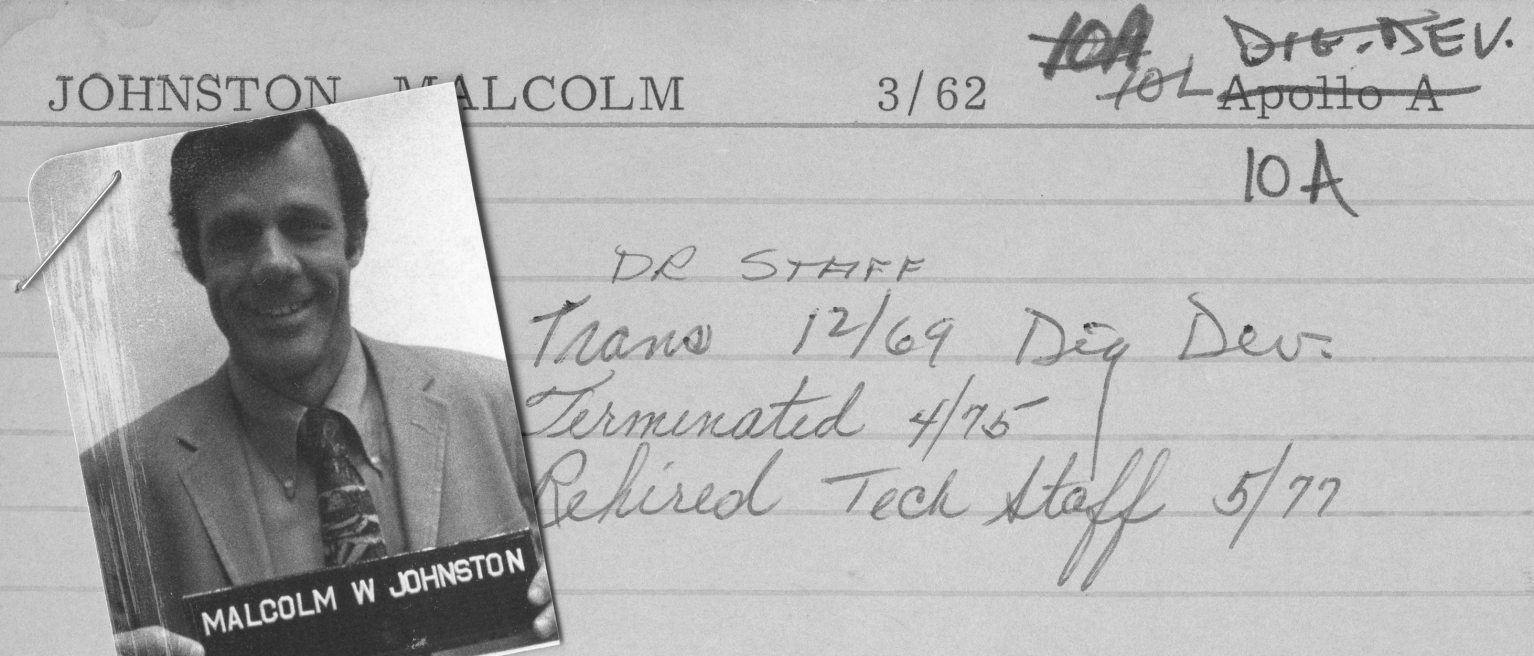 10A DIG. DEV.
JOHNSTON MALCOLM 3/62 10L Apollo A
10A
DR STAFF
Trans 12/69 Dig Dev.
Terminated 4/75
Rehired Tech Staff 5/77
MALCOLM W JOHNSTON